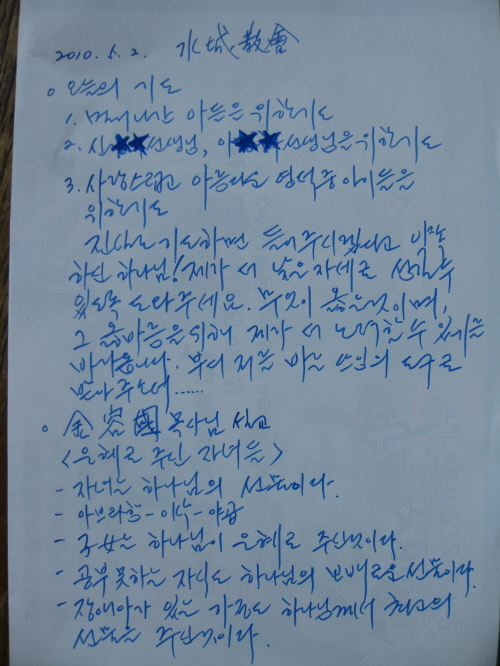 2010. 5. 2. 水城教會
○ 오늘의 기도
1. 며느리나 아들을 위한 기도
2. 신★★선생님, 이★★선생님을 위한 기도
3. 사랑스럽고 아름다운 영석중 아이들을
위한 기도
진심으로 기도하면 들어주시겠다고 약속
하신 하나님! 제가 더 낮은 자세로 섬길 수
있도록 도와주세요. 무엇이 옳은 것이며,
그 옳바름을 위해 제가 더 노력할 수 있기를
바라옵니다. 부디 저를 바른 쓰임의 도구로
받아주소서......
○ 金容國 목사님 설교
<은혜로 주신 자녀들>
- 자녀는 하나님의 선물이다.
- 아브라함-이삭-야곱
- 자녀는 하나님이 은혜로 주신 것이다.
- 공부 못하는 자식도 하나님의 보배로운 선물이다.
- 장애아가 있는 가정도 하나님께서 최고의
선물을 주신 것이다.